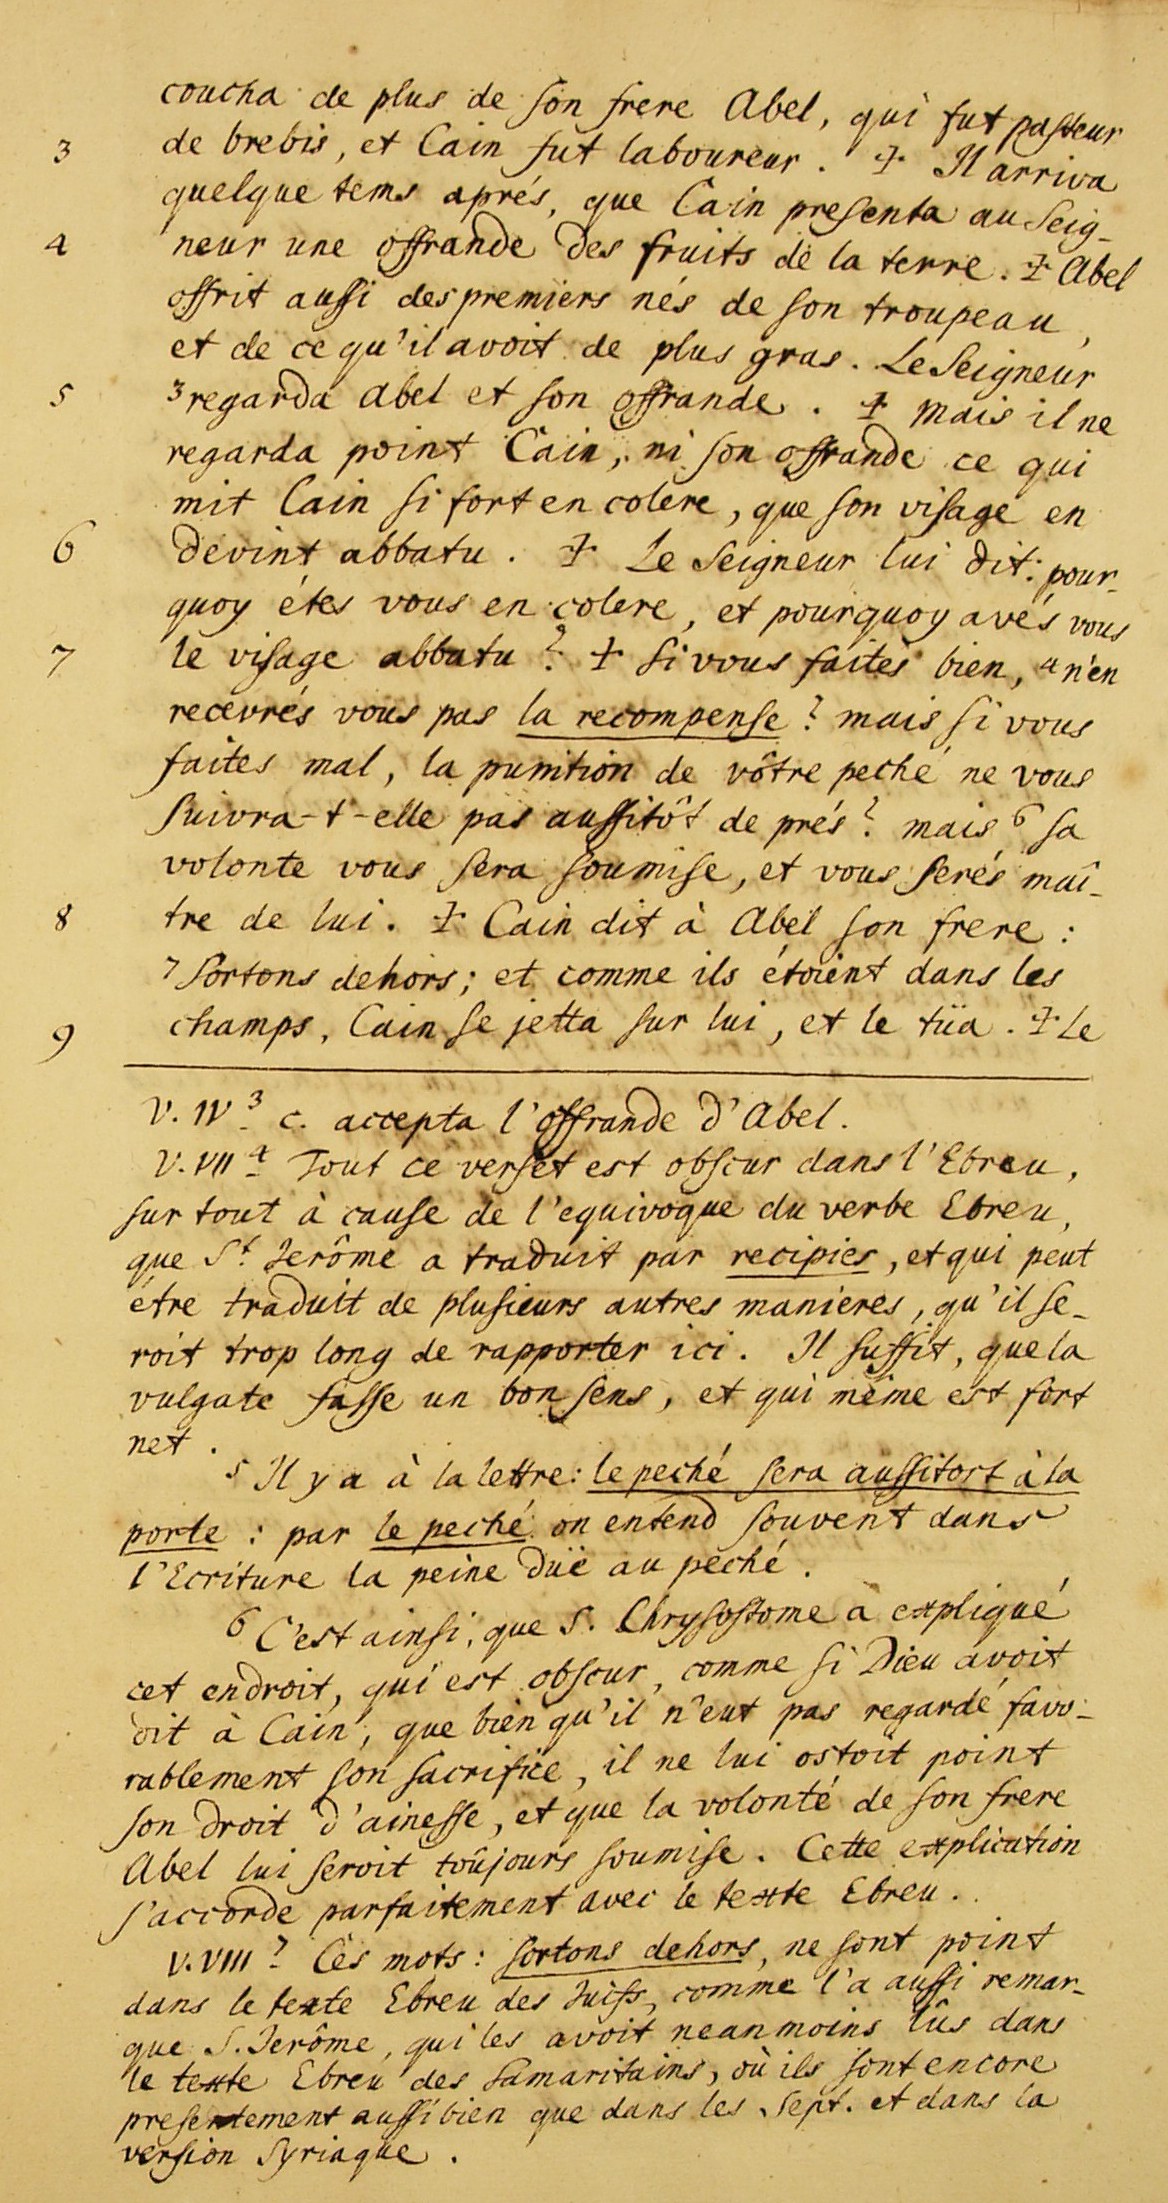 coucha de plus de son frere Abel, qui fut pasteur
3 de brebis, et Cain fut laboureur. ‡ Il arriva
quelque tems aprés, que Cain presenta au Seig-
4 neur une offrande des fruits de la terre. ‡ Abel
offrit aussi des premiers nés de son troupeau,
et de ce qu'il avoit de plus gras. Le Seigneur
5 ³regarda Abel et son offrande. ‡ mais il ne
regarda point Cain, ni son offrande ce qui
mit Cain si fort en colere, que son visage en
6 devint abbatu. ‡ Le Seigneur lui dit: pour-
quoy étes vous en colere, et pourquoy avés vous
7 le visage abbatu? ‡ Si vous faites bien, ⁴n'en
recevrés vous pas la recompense? mais si vous
faites mal, la punition de vôtre peché ne vous
suivra-t-elle pas aussitôt de prés? mais ⁶sa
volonte vous sera soumise, et vous serés maî-
8 tre de lui. ‡ Cain dit à Abel son frere:
⁷Sortons dehors; et comme ils étoient dans les
9 champs, Cain se jetta sur lui, et le tüa. ‡ Le
V. IV ³ c. accepta l'offrande d'Abel.
V. VII ⁴ Tout ce verset est obscur dans l'Ebreu,
sur tout à cause de l'equivoque du verbe Ebreu,
que St. Jerôme a traduit par recipies, et qui peut
étre traduit de plusieurs autres manieres, qu'il se-
roit trop long de rapporter ici. Il suffit, que la
vulgate fasse un bon sens, et qui méme est fort
net.
⁵ Il y a à la lettre: le peché sera aussitost à la
porte: par le peché on entend souvent dans
l'Ecriture la peine düe au peché.
⁶ C'est ainsi, que S. Chrysostome a expliqué
cet endroit, qui est obscur, comme si Dieu avoit
dit à Cain, que bien qu'il n'eut pas regardé favo-
rablement son sacrifice, il ne lui ostoit point
son droit d'ainesse, et que la volonté de son frere
Abel lui seroit toûjours soumise. Cette explication
s'accorde parfaitement avec le texte Ebreu.
V. VIII ⁷ Ces mots: sortons dehors, ne sont point
dans le texte Ebreu des Juifs, comme l'a aussi remar-
que S. Jerôme, qui les avoit neanmoins lûs dans
le texte Ebreu des Samaritains, où ils sont encore
presentement aussi bien que dans les Sept. et dans la
version Syriaque.